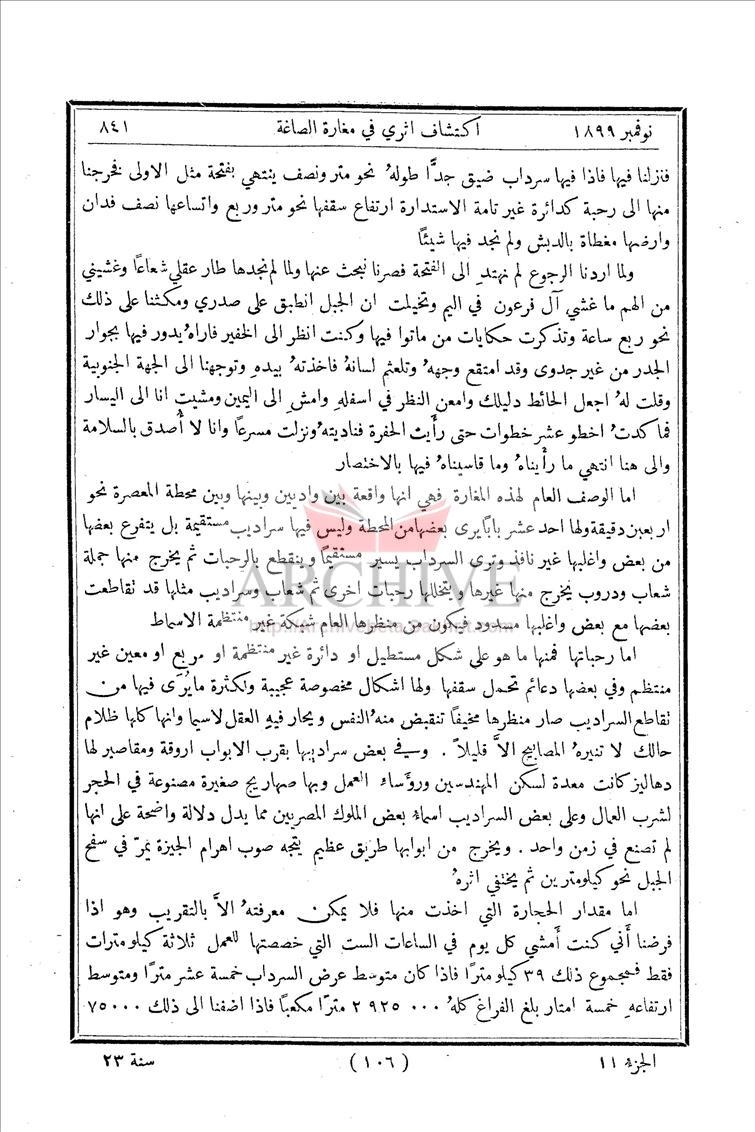 نوفمبر ١٨٩٩ اكتشاف اثري في مغارة الصاغة ٨٤١
فنزلنا فيها فاذا فيها سرداب ضيق جدًّا طولهُ نحو متر ونصف ينتهي بفتحة مثل الاولى فخرجنا
منها الى رحبة كدائرة غير تامة الاستدارة ارتفاع سقفها نحو متر وربع واتساعها نصف فدان
وارضها مغطاة بالدبش ولم نجد فيها شيئًا
ولما اردنا الرجوع لم نهتدِ الى الفتحة فصرنا نبحث عنها ولما لم نجدها طار عقلي شعاعًا وغشيني
من الهم ما غشي آل فرعون في اليم وتخيلت ان الجبل انطبق على صدري ومكثنا على ذلك
نحو ربع ساعة وتذكرت حكايات من ماتوا فيها وكنت انظر الى الخفير فاراهُ يدور فيها بجوار
الجدر من غير جدوى وقد امتقع وجههُ وتلعثم لسانهُ فاخذتهُ بيدهِ وتوجهنا الى الجهة الجنوبية
وقلت لهُ اجعل الحائط دليلك وامعن النظر في اسفلهِ وامشِ الى اليمين ومشيت انا الى اليسار
فما كدتُ اخطو عشر خطوات حتى رأيت الحفرة فناديتهُ ونزلت مسرعًا وانا لا أصدق بالسلامة
والى هنا انتهي ما رأيناهُ وما قاسيناهُ فيها بالاختصار
اما الوصف العام لهذه المغارة فهي انها واقعة بين واديين وبينها وبين محطة المعصرة نحو
اربعين دقيقة ولها احد عشر بابًا يرى بعضها من المحطة وليس فيها سراديب مستقيمة بل يتفرع بعضها
من بعض واغلبها غير نافذ وترى السرداب يسير مستقيمًا وينقطع بالرحبات ثم يخرج منها جملة
شعاب ودروب يخرج منها غيرها ويتخللها رحبات اخرى ثم شعاب وسراديب مثلها قد نقاطعت
بعضها مع بعض واغلبها مسدود فيكون من منظرها العام شبكة غير منتظمة الاسماط
اما رحباتها فمنها ما هو على شكل مستطيل او دائرة غير منتظمة او مربع او معين غير
منتظم وفي بعضها دعائم تحمل سقفها ولها اشكال مخصوصة عجيبة ولكثرة ما يُرَى فيها من
نقاطع السراديب صار منظرها مخيفًا تنقبض منهُ النفس ويحار فيهِ العقل لاسيما وانها كلها ظلام
حالك لا تنيرهُ المصابيح الاَّ قليلاً . وفي بعض سراديبها بقرب الابواب اروقة ومقاصير لها
دهاليز كانت معدة لسكن المهندسين ورؤساء العمل وبها صهاريج صغيرة مصنوعة في الحجر
لشرب العمال وعلى بعض السراديب اسماء بعض الملوك المصريين مما يدل دلالة واضحة على انها
لم تصنع في زمن واحد . ويخرج من ابوابها طريق عظيم يتجه صوب اهرام الجيزة يمرّ في سفح
الجبل نحو كيلومترين ثم يختفي اثرهُ
اما مقدار الحجارة التي اخذت منها فلا يمكن معرفتهُ الاَّ بالتقريب وهو اذا
فرضنا أني كنت أمشي كل يوم في الساعات الست التي خصصتها للعمل ثلاثة كيلومترات
فقط فمجموع ذلك ٣٩ كيلومترًا فاذا كان متوسط عرض السرداب خمسة عشر مترًا ومتوسط
ارتفاعهِ خمسة امتار بلغ الفراغ كلهُ ٢٩٢٥٠٠٠ مترًا مكعبًا فاذا اضفنا الى ذلك ٧٥٠٠٠
الجزء ١١ (١٠٦) سنة ٢٣
ARCHIVE